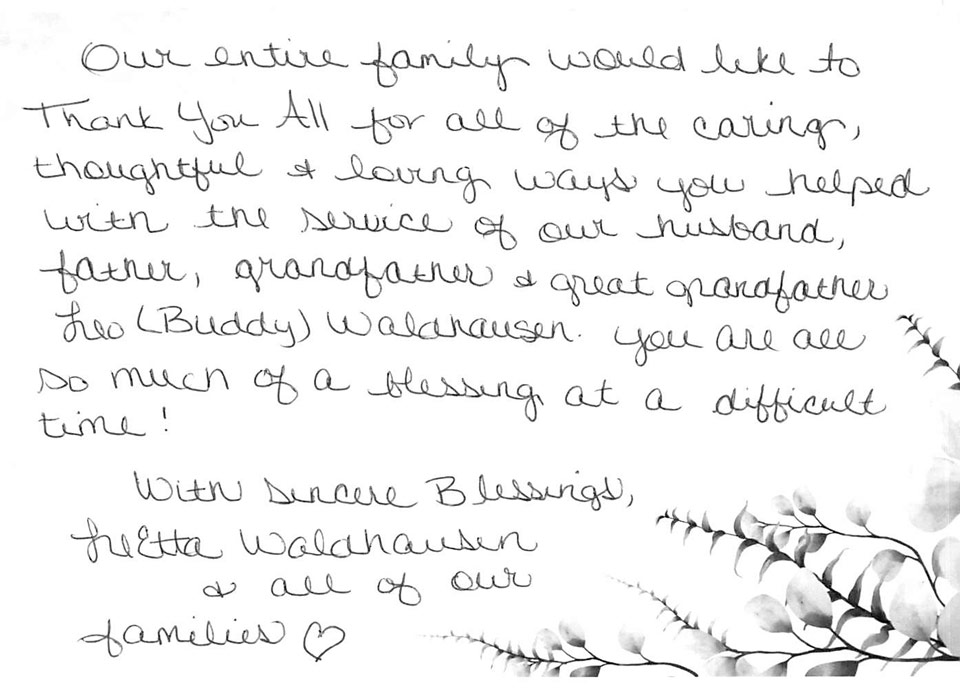 Our entire family would like to
Thank You All for all of the caring,
thoughtful & loving ways you helped
with the service of our husband,
father, grandfather & great grandfather
Leo (Buddy) Waldhausen. You are all
so much of a blessing at a difficult
time!
With sincere Blessings,
LeEtta Waldhausen
& all of our
families ♡